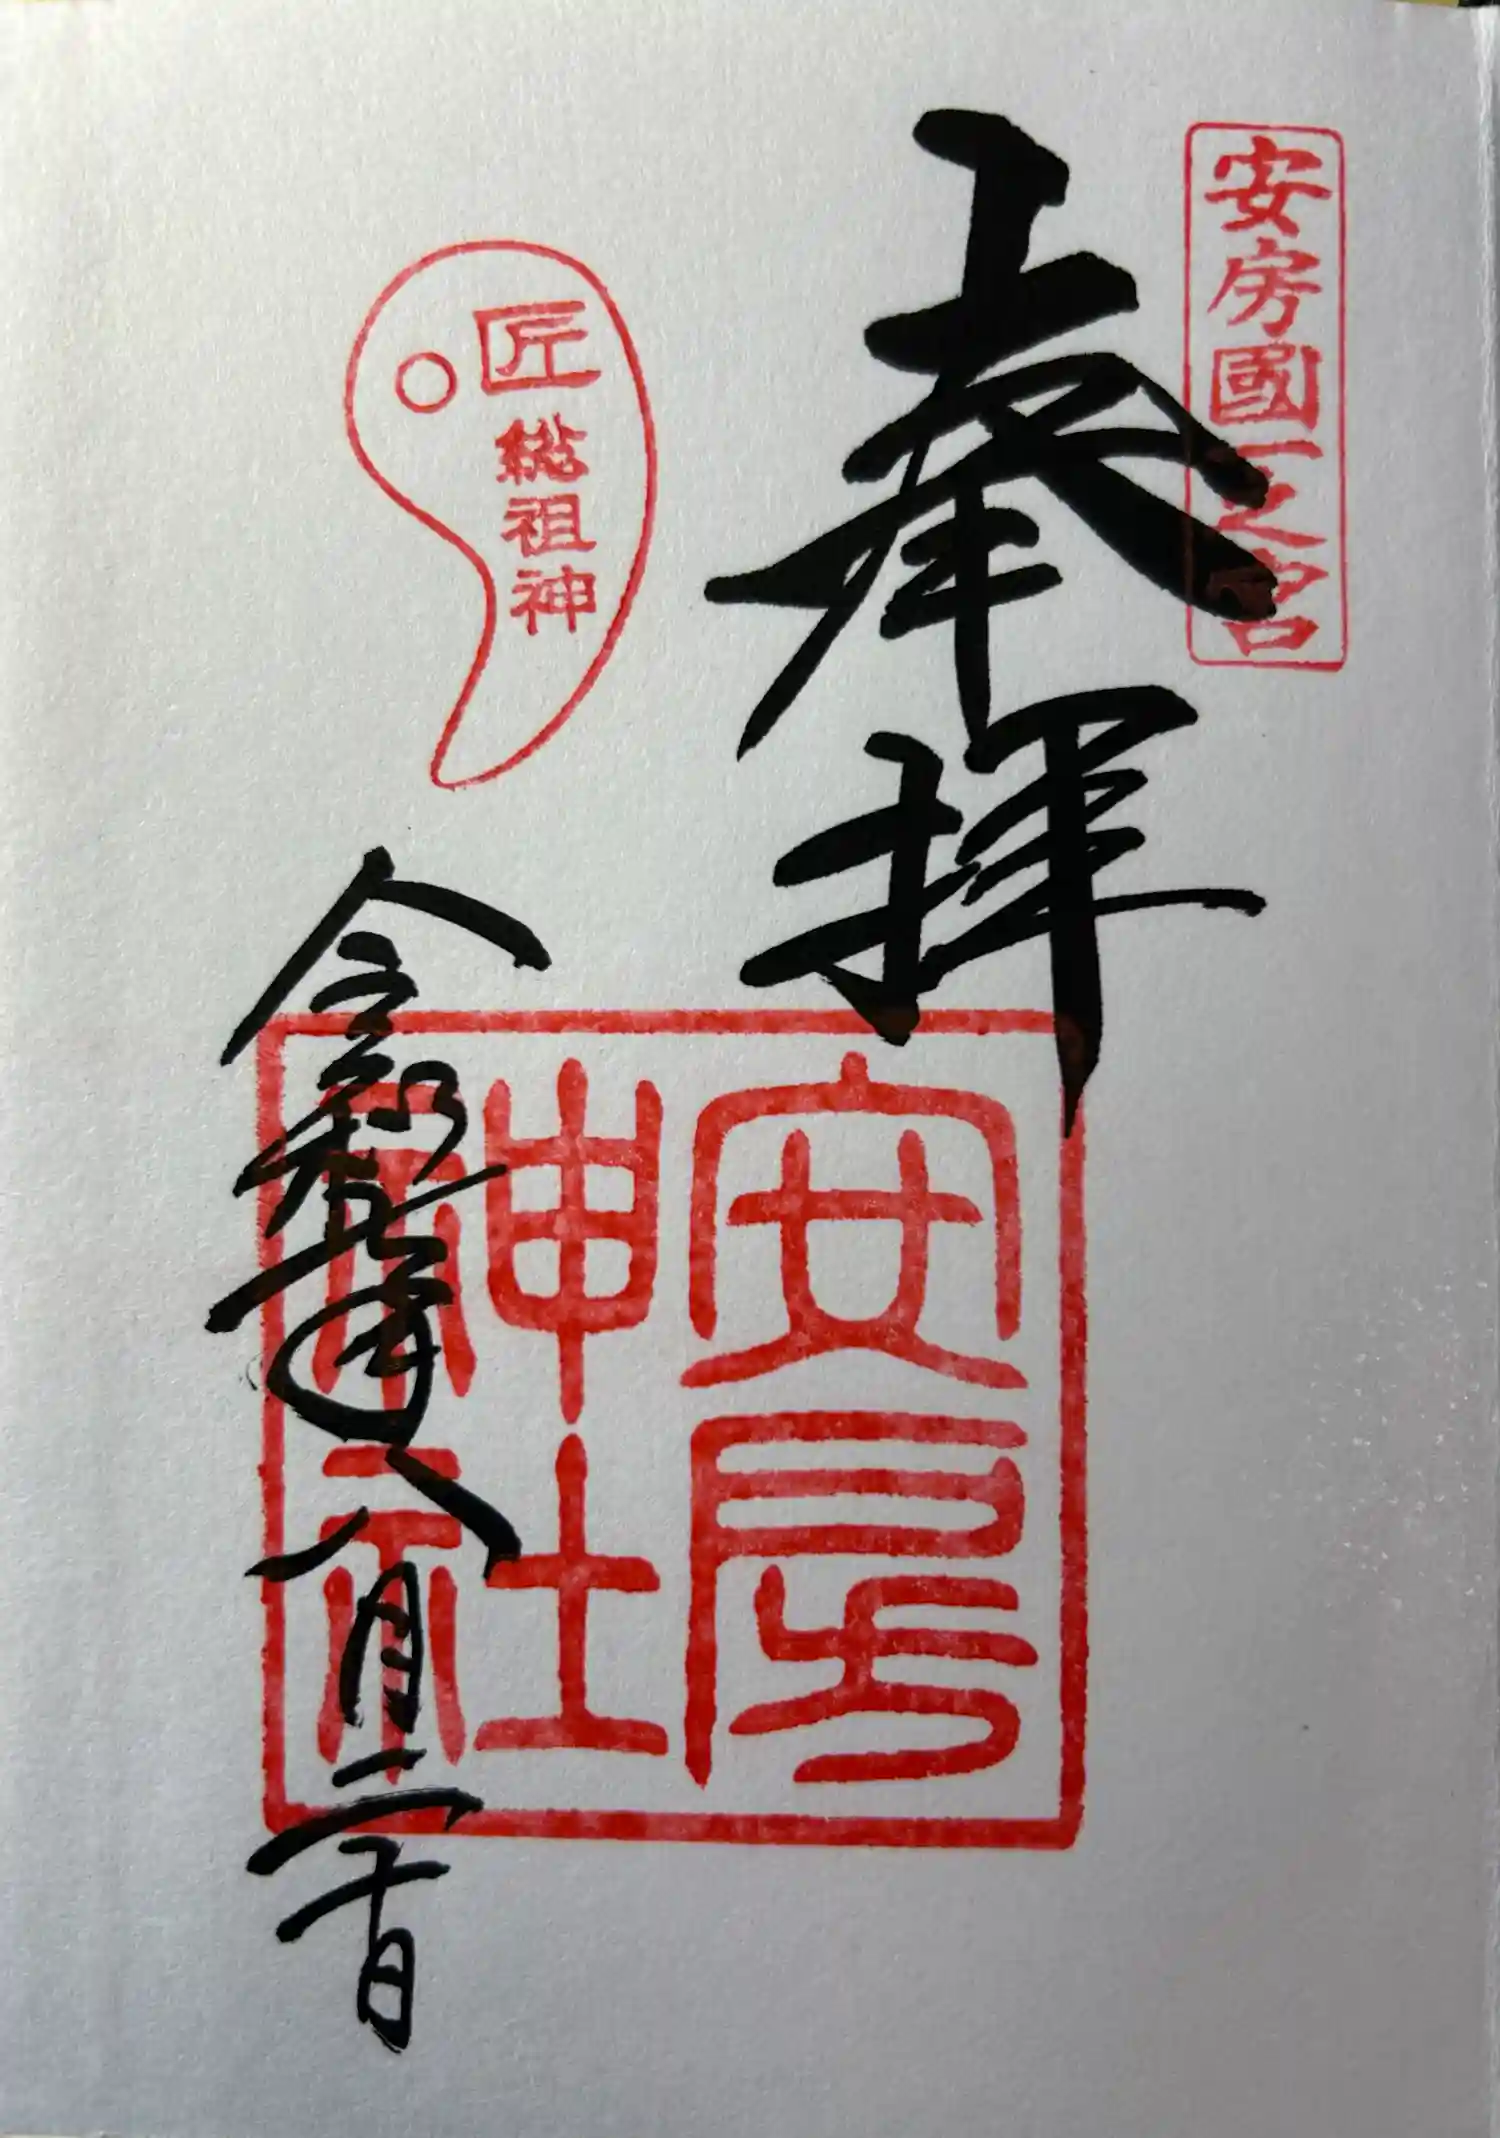 安房國一之宮
奉拝
安房
神社
匠
総祖神
令和五年八月二十日